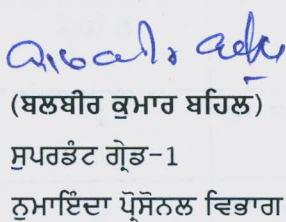 (ਬਲਬੀਰ ਕੁਮਾਰ ਬਹਿਲ)
ਸੁਪਰਡੰਟ ਗ੍ਰੇਡ-1
ਨੁਮਾਇੰਦਾ ਪ੍ਰੋਸੋਨਲ ਵਿਭਾਗ